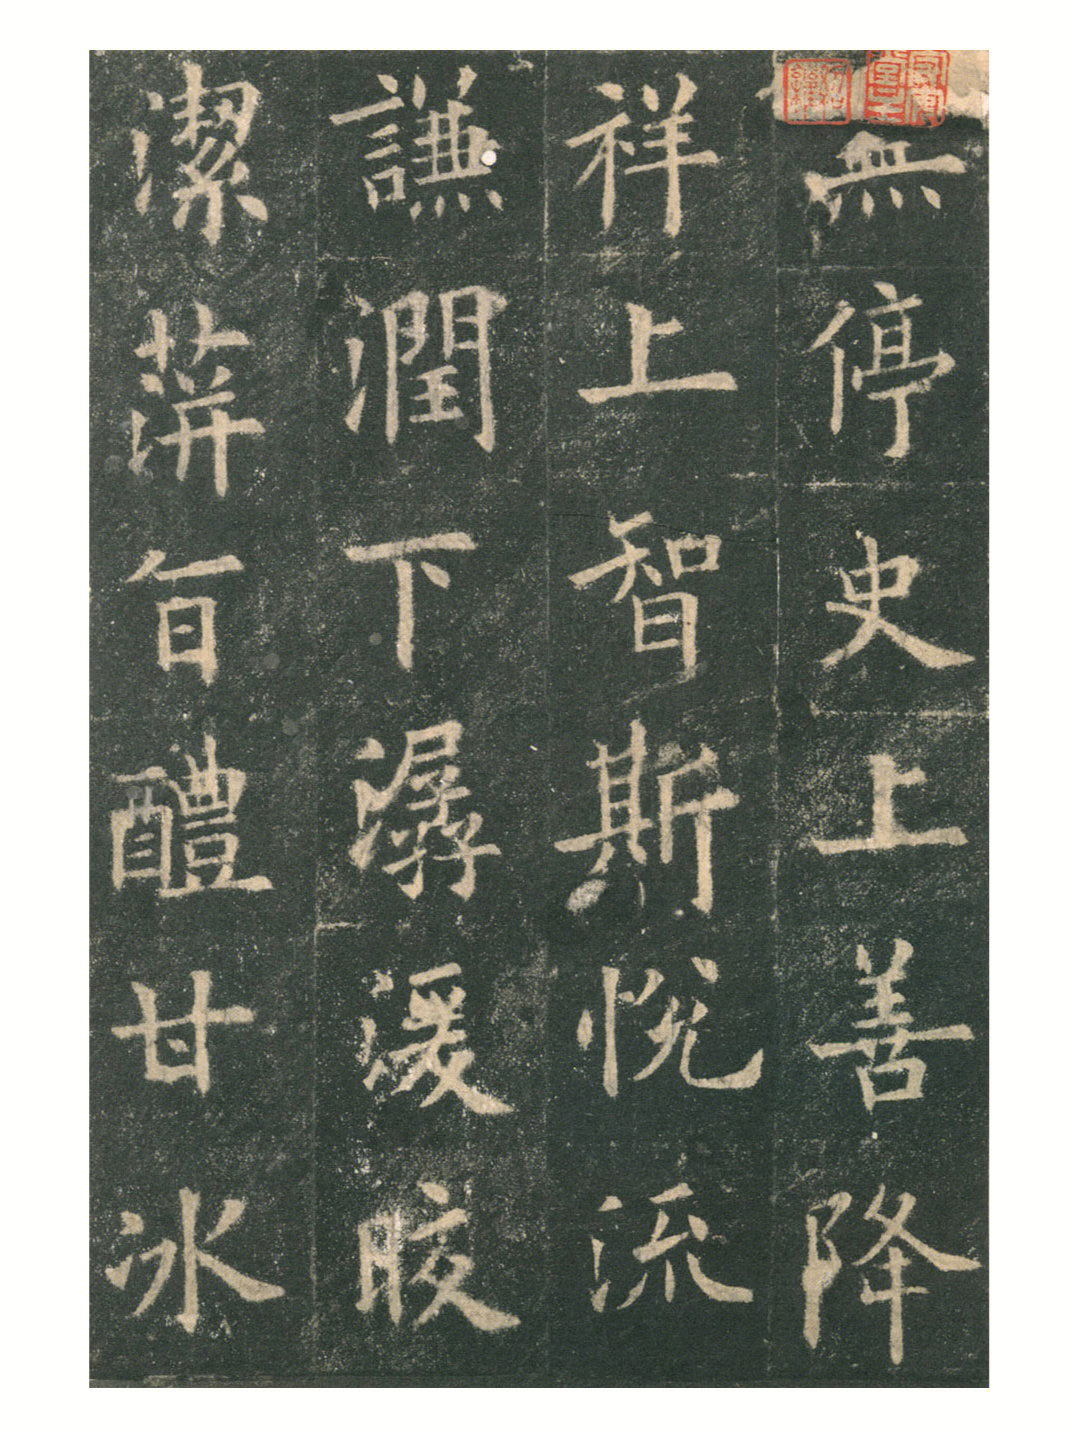 無停史上善降
祥上智斯悅流
謙潤下潺湲晈
潔萍旨醴甘冰